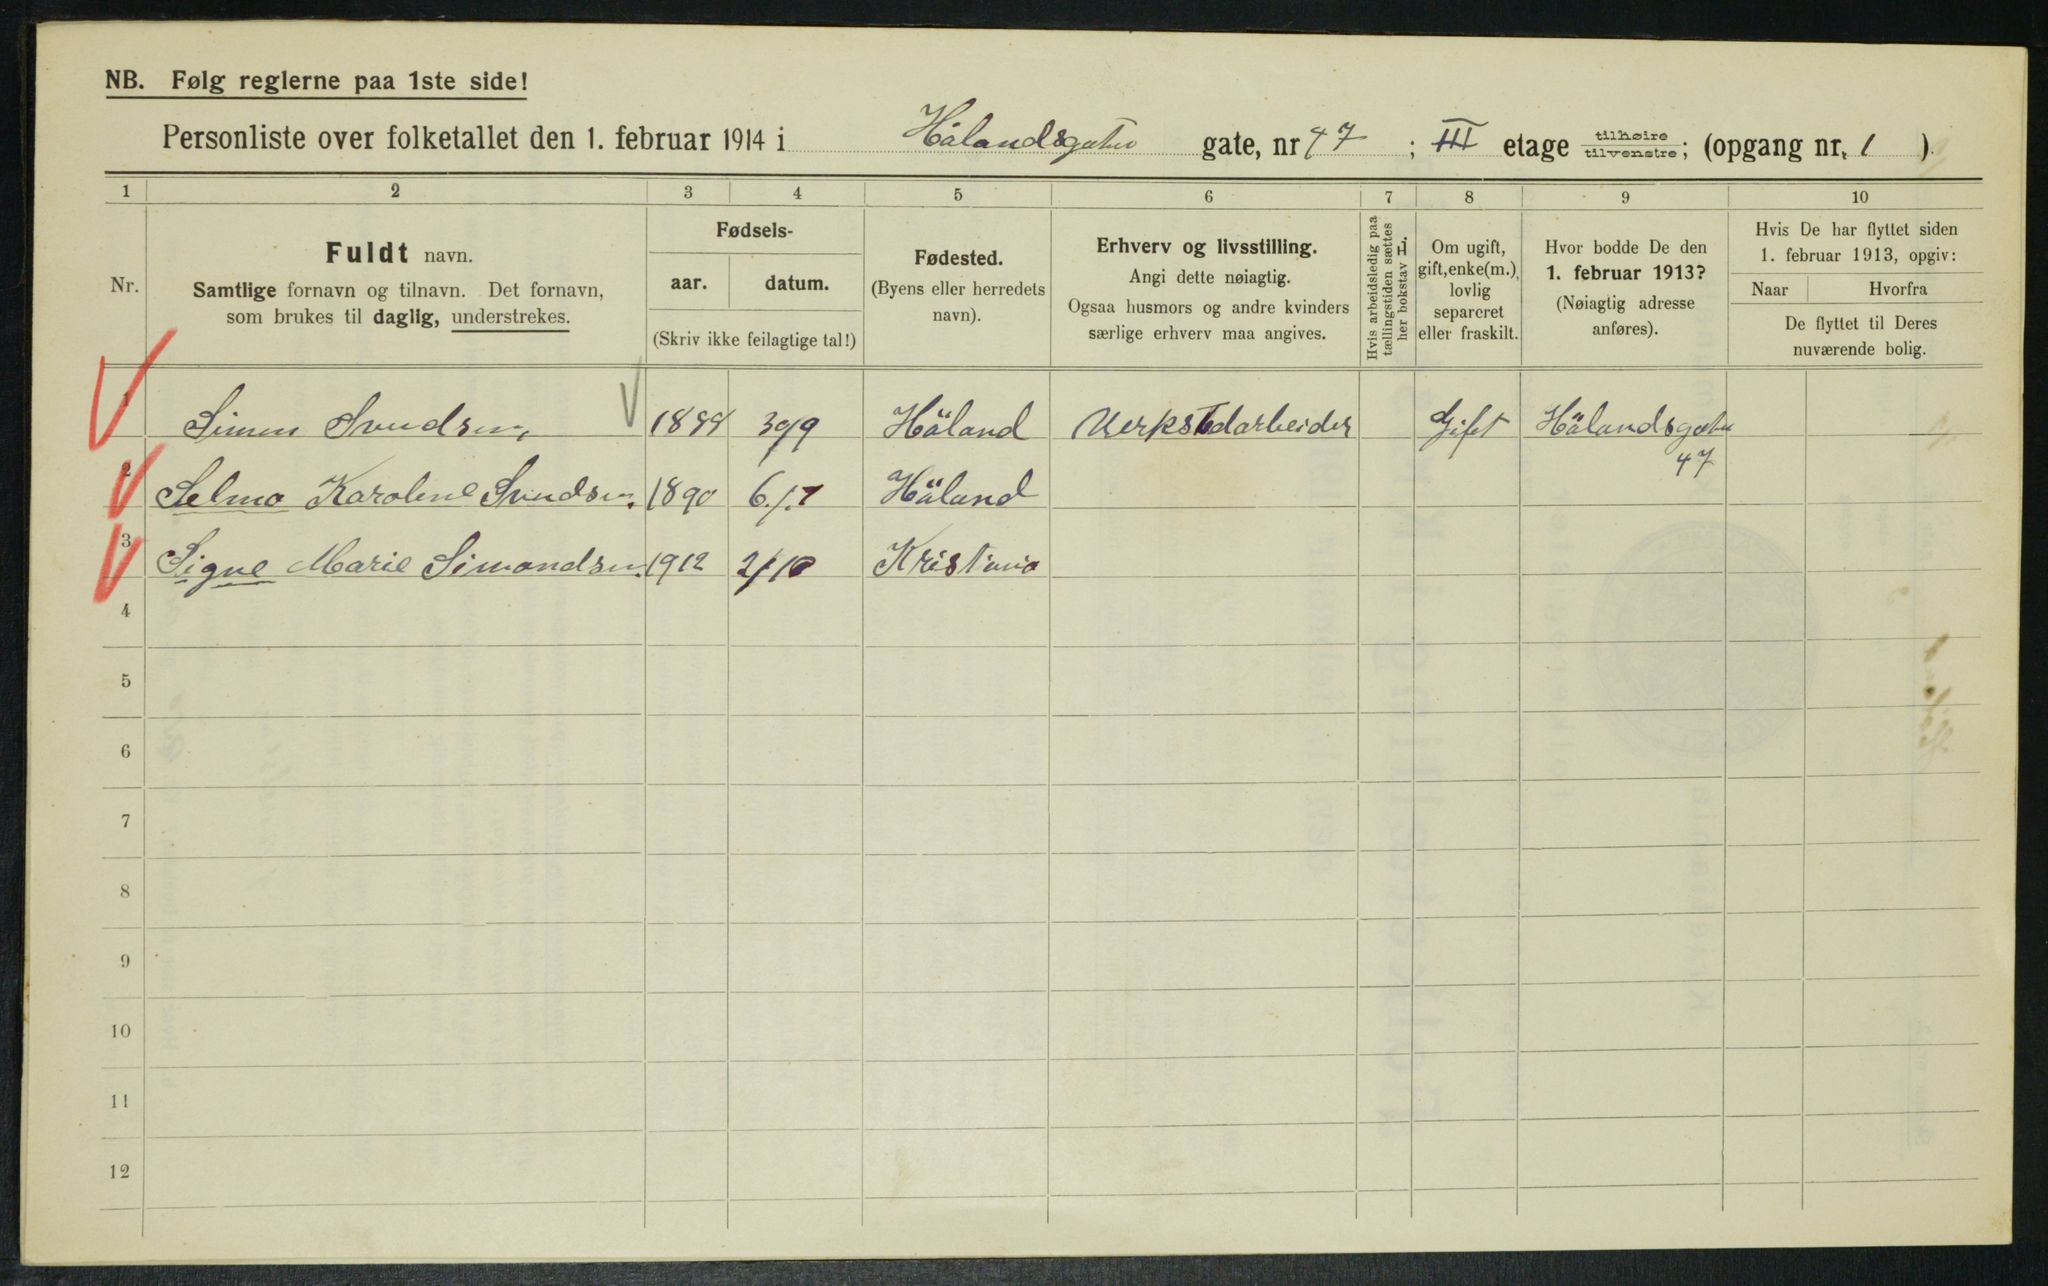 NB. Følg reglerne paa 1ste side!
Personliste over folketallet den 1. februar 1914 i Hålandsgaten gate, nr 47 ; III etage tilhøire tilvenstre; (opgang nr. 1 )
1 2 3 4 5 6 7 8 9 10
Nr.
Fuldt navn.
Samtlige fornavn og tilnavn. Det fornavn,
som brukes til daglig, understrekes.
Fødsels-
aar. datum.
(Skriv ikke feilagtige tal!)
Fødested.
(Byens eller herredets
navn).
Erhverv og livsstilling.
Angi dette nøiagtig.
Ogsaa husmors og andre kvinders
særlige erhverv maa angives.
Hvis arbeidsledig paa
tællingstiden sættes
her bokstav L.
Om ugift,
gift, enke(m.),
lovlig
separeret
eller fraskilt.
Hvor bodde De den
1. februar 1913?
(Nøiagtig adresse
anføres).
Hvis De har flyttet siden
1. februar 1913, opgiv:
Naar Hvorfra
De flyttet til Deres
nuværende bolig.
1 Simen Svendsen, 1888 30/9 Håland Verkstedarbeider Gift Hålandsgaten
47
2 Selma Karoline Svendsen. 1890 6/1 Håland
3 Signe Marie Simondsen. 1912 2/10 Kristiania
4
5
6
7
8
9
10
11
12